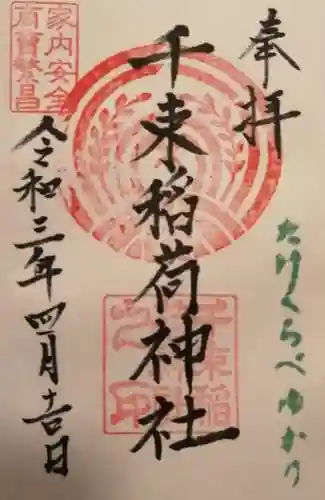 奉拝
たけくらべゆかり
千束稲荷神社
令和三年四月十一日
家内安全
商賣繁昌
千束稲
荷神社
之印